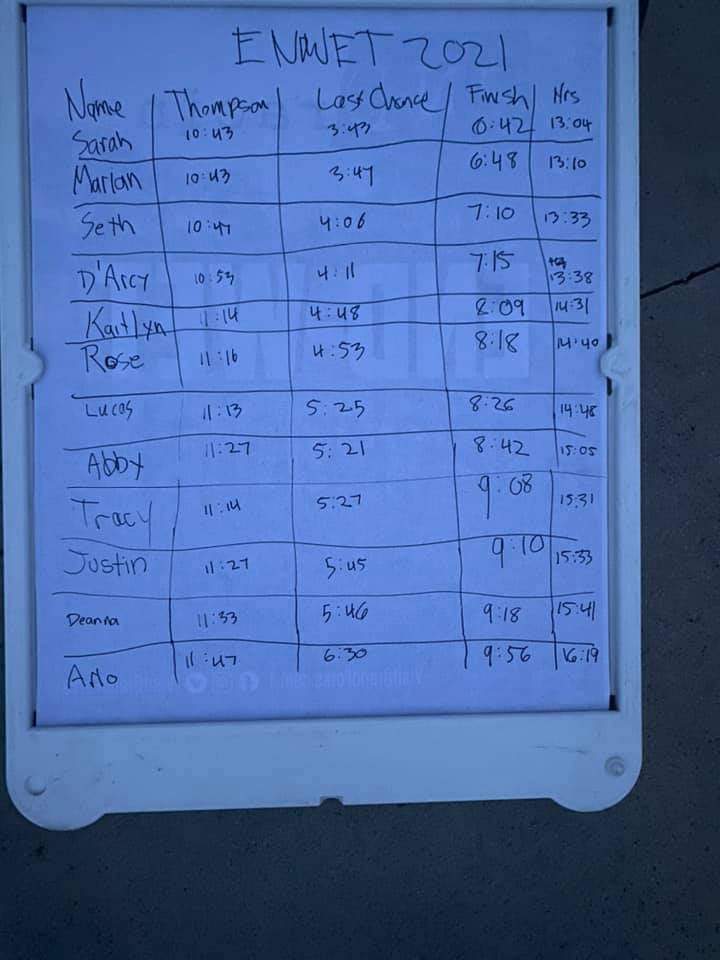 ENWET 2021
Name Thompson Last Chance Finish Hrs
Sarah 10:43 3:43 6:42 13:04
Marlan 10:43 3:47 6:48 13:10
Seth 10:47 4:06 7:10 13:33
D'Arcy 10:53 4:11 7:15 13:38
Kaitlyn 11:14 4:48 8:09 14:31
Rose 11:16 4:53 8:18 14:40
Lucas 11:13 5:25 8:26 14:48
Abby 11:27 5:21 8:42 15:05
Tracy 11:14 5:27 9:08 15:31
Justin 11:27 5:45 9:10 15:33
Deanna 11:33 5:46 9:18 15:41
Arlo 11:47 6:30 9:56 16:19